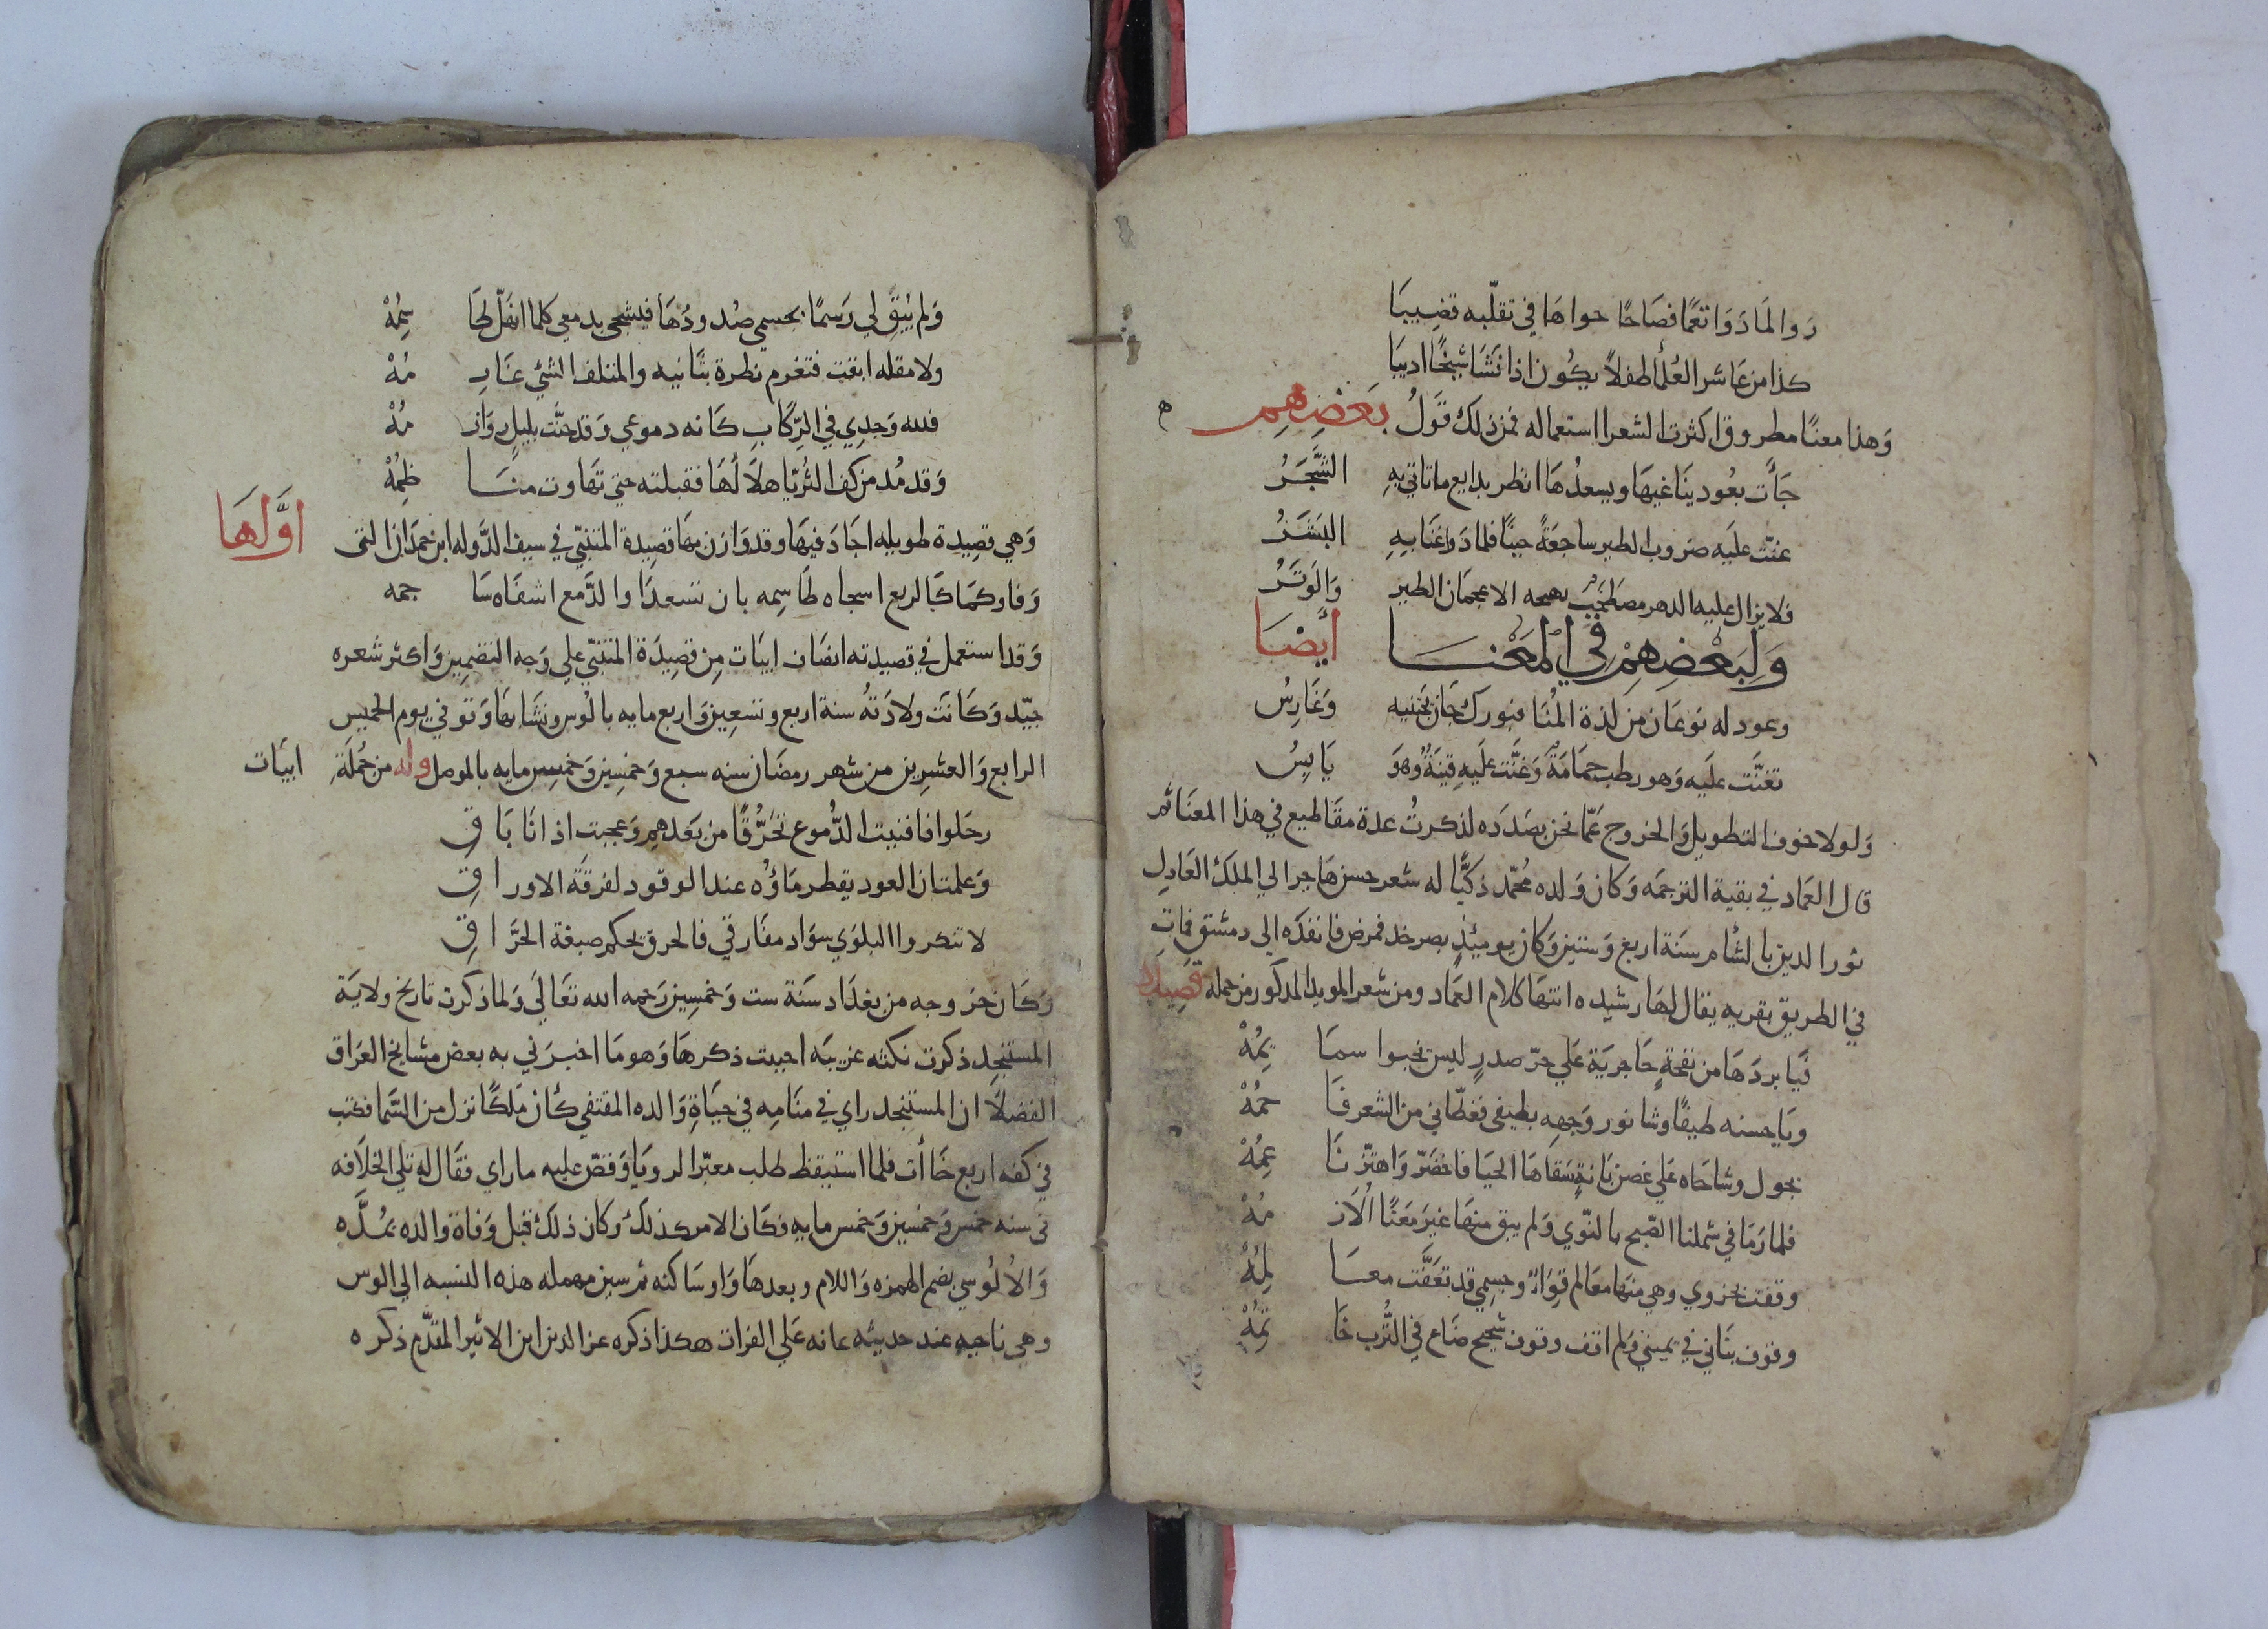 روا لما دوا نغمًا فصاحًا حواها في تقلّبه قضيبا
كذا من عاشر العُلما طفلاً يكون اذا نشا شيخًا اديبا
وَهذا معنًا مطروق اكثرت الشعرا استعماله فمن ذلك قَولُ بَعْضِهِم ه
جَأت بعُود يناغيها ويسعدُها انظر بدايع ما تاتي بهِ الشَّجَرُ
غنّت عليَه ضروب الطير ساجعَةً حينًا فلما ذوا غنا بهِ البَشَرُ
فلا يزال عليه الدهر مصطحِبٌ يهيجه الاعجمان الطير وَالوَترُ
وَلِبَعْضِهِمْ فِي المَعْنَا أَيْضَا
وعود له نوعان من لذة المُنَا فبورك جَانٍ يجتنيه وَغَارِسُ
تغنَّت عليَه وَهو رطب حمَامَةٌ وَغنَّت علَيهِ قينَةٌ وَهوَ يَابِسُ
وَلولا خوف التطويل وَالخروج عَمّا نحن بصَدَدَه لذكرتُ عدة مقَاطيع في هذا المعنَا ثم
قال العمَاد في بقية الترجمَه وَكان وَلده مُحمّد ذكيًّا له شعر حسن هَاجر الي الملك العَادِل
نور الدين بالشام سنَة اربع وَستين وَكان يوميئذٍ بصرخد فمرض فانفذه الى دمشق فماتَ
في الطريق بقريه يقال لهَا رشيده انتهَا كلام العمَاد ومن شعر المويد المذكور من جملة قصيدة
فيَا بردَهَا من نفحةٍ حَاجريَة عَلي حرّ صدرٍ ليس تخبوا سمَا يمُهْ
ويَا حسنه طيفًا وشا نور وَجههِ بطيفي فغطّاني من الشعر فَا حمُهْ
يجول وشاحَاه عَلي غصن بَانةٍ سَقاهَا الحيَا فاخضَرّ وَاهتزّ نَا عِمُهْ
فلما رَمَا في شملنا الصّبح بالنّوي وَلم يبق منهَا غيرَ مَعنًا اُلاَزِ مُهْ
وقفت بحزوي وهي منهَا معَالم قِوَاءٌ وجسمي قد تعَفَّت معَا لِمُهْ
وقوف بنَاني في يميني وَلم اقف وقوف شحيح ضَاع في التُّرب خَا تمُهْ
وَلم يُبْقِ لي رَسمًا بجسمي صُدودُهَا فيشجى بدمعي كلما انهَلّ لهَا سِمُهْ
ولا مقله ابقت فتغرم نظرة بثَانيه والمتلف الشئي غَارِ مُهْ
فلله وَجدِي في الرِّكَابِ كَانه دموعي وَقد حنَّت بليلٍ رِوَازِ مُهْ
وَقد مُد من كف الثُريّا هلاَلُهَا فقبلته حتي تهَاوت منَا ظِمُهْ
وَهي قصِيدة طويله اجَادَ فيهَا وقد وَازن بهَا قصِيدة المتنبّي في سيف الدَّوله ابن حمدَان التى اوَّلهَا
وَفاوكمَا كالربع اسجاه طَاسِمه بان تسعدَا والدَّمع اشفَاه سَا جمه
وَقد استعمل في قصيدته انصَاف ابيَات مِن قصِيدَة المتنبّي علي وَجه التضمِين وَاكثر شعره
جيّد وَكَانَت ولادَتهُ سنة اربع وتسعِين وَاربع مايه بالُوس ونشَا بهَا وَتوفي يوم الخميس
الرابع وَالعشرين من شهر رمضَان سنه سبع وَخمسِين وَخمسِ مايه بالموصل وله من جُملَةِ ابيَات
رحَلوا فافنيت الدُّموع تحَرُّقًا من بَعدهِم وَعجبت اذ انَا بَا قِ
وَعلمت ان العود يقطر مَاؤُه عند الوقود لفرقَة الاورا قِ
لا تنكروا البلوَي سوَاد مفَارقي فالحرق يحكم صبغة الحرَّ ا قِ
وَكَان خروجه من بغدَاد سَنة ست وَخمسِين رَحِمه الله تعَالَي وَلما ذكرت تاريخ ولايَة
المستنجِد ذكرت نكته غريبَه احببت ذكرهَا وَهو مَا اخبرَني به بعض مشايخ العرَاق
الفضلاَ ان المستنجد راي في منَامِه في حيَاةِ وَالده المقتفي كَأن مَلكًا نزل من السَّما فكتب
في كفه اربع خَاأت فلما استيقظ طلب معبّر الرويَا وَقصّ عليه ما راي فقَال له تلي الخلاَفه
في سنه خمس وَخمسين وَخمس مايه فكَان الامر كذلك وكَان ذلك قبل وَفاة والده بمُدَّه
وَالاُلُوسي بضم الهمزه وَاللام وبعدهَا وَاو سَاكنه ثم سين مهمله هذه النسبه الي الوس
وهي ناحيه عند حديثه عانه عَلي الفرات هكذا ذكره عز الدين ابن الاثير المقدّم ذكره